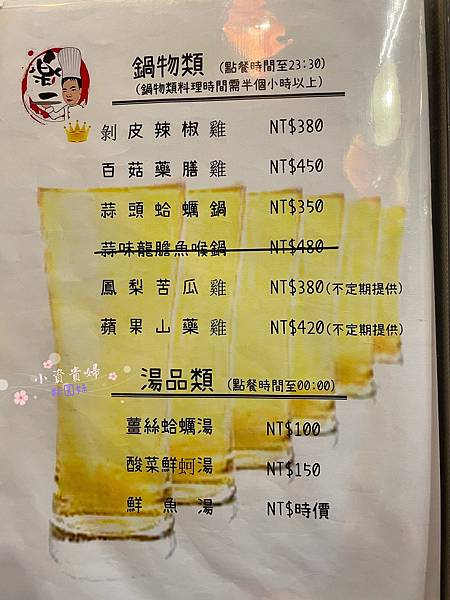 樂一
鍋物類 (點餐時間至23:30)
(鍋物類料理時間需半個小時以上)
剝皮辣椒雞 NT$380
百菇藥膳雞 NT$450
蒜頭蛤蠣鍋 NT$350
蒜味龍膽魚喉鍋 NT$480
鳳梨苦瓜雞 NT$380(不定期提供)
蘋果山藥雞 NT$420(不定期提供)
湯品類 (點餐時間至00:00)
薑絲蛤蠣湯 NT$100
酸菜鮮蚵湯 NT$150
鮮魚湯 NT$時價
小資貴婦